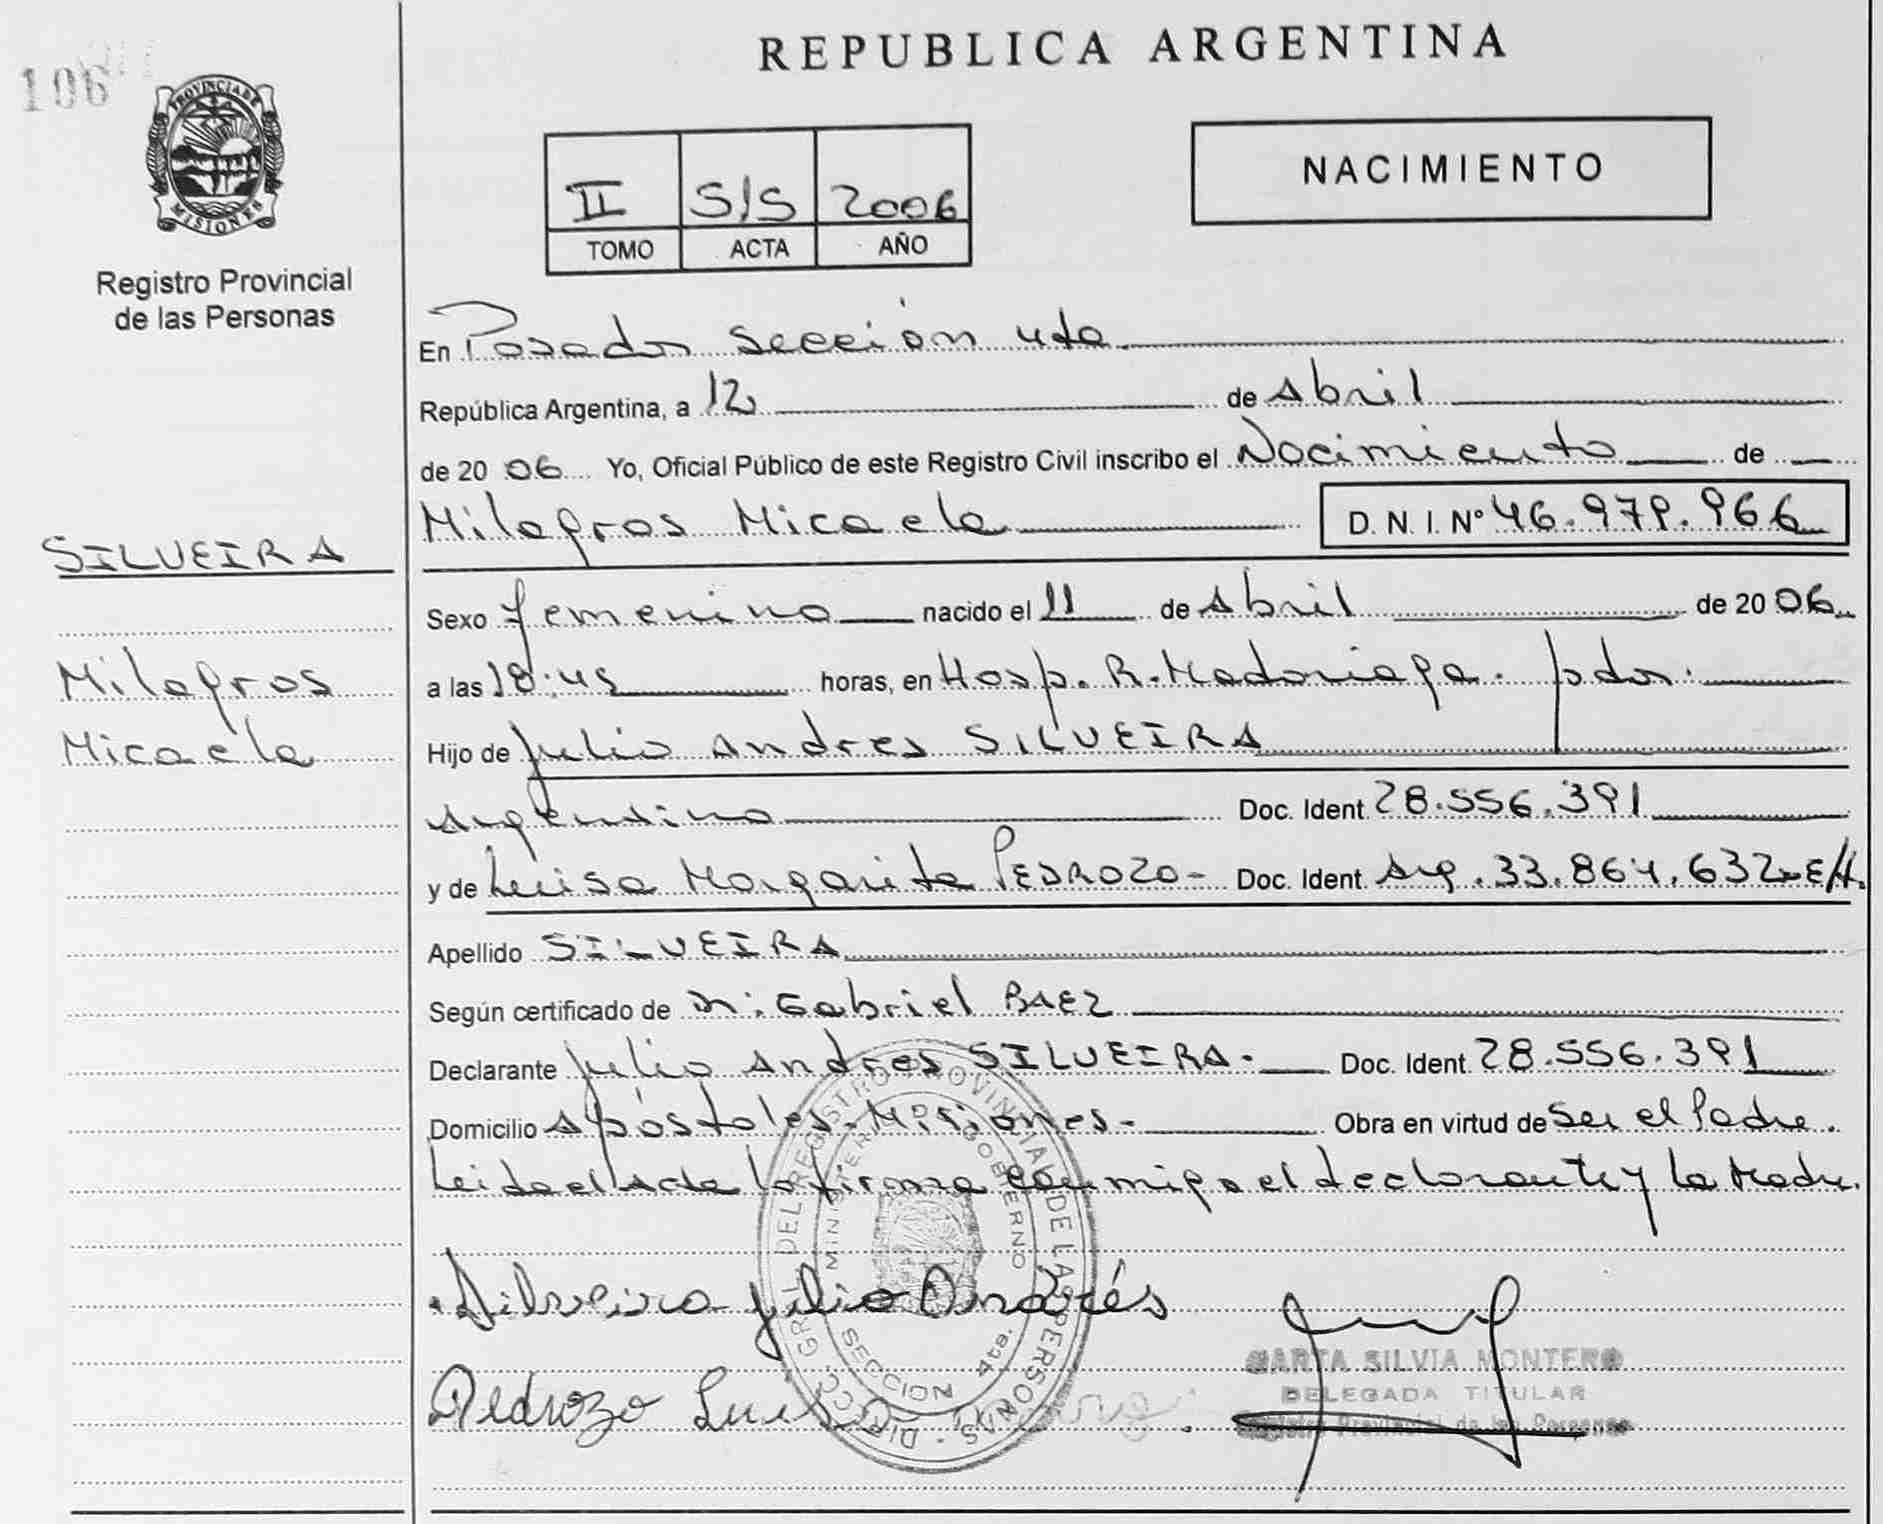 106
PROVINCIA DE
MISIONES
Registro Provincial
de las Personas
SILVEIRA
Milagros
Micaela
REPUBLICA ARGENTINA
II S/S 2006
TOMO ACTA AÑO
NACIMIENTO
En Posadas Sección 4ta
República Argentina, a 12 de Abril
de 2006 Yo, Oficial Público de este Registro Civil inscribo el Nacimiento de
Milagros Micaela D. N. I. Nº 46.979.966
Sexo femenino nacido el 11 de Abril de 2006
a las 18:45 horas, en Hosp. R. Madariaga. pdas.
Hijo de Julio Andres SILVEIRA
Argentino Doc. Ident 28.556.391
y de Luisa Margarita PEDROZO- Doc. Ident. Arg. 33.864.632
Apellido SILVEIRA
Según certificado de Dr: Gabriel BAEZ
Declarante Julio Andres SILVEIRA- Doc. Ident. 28.556.391
Domicilio Apóstoles-Misiones- Obra en virtud de Ser el Padre.
Leida el Acta la firma conmigo el declarante y la Madre.
Silveira Julio Andrés
Pedrozo Luisa
DIRECC. GRAL. DEL REGISTRO PROVINCIAL DE LAS PERSONAS
MINISTERIO GOBIERNO
SECCION 4ta.
MARTA SILVIA MONTERO
DELEGADA TITULAR
Registro Provincial de las Personas